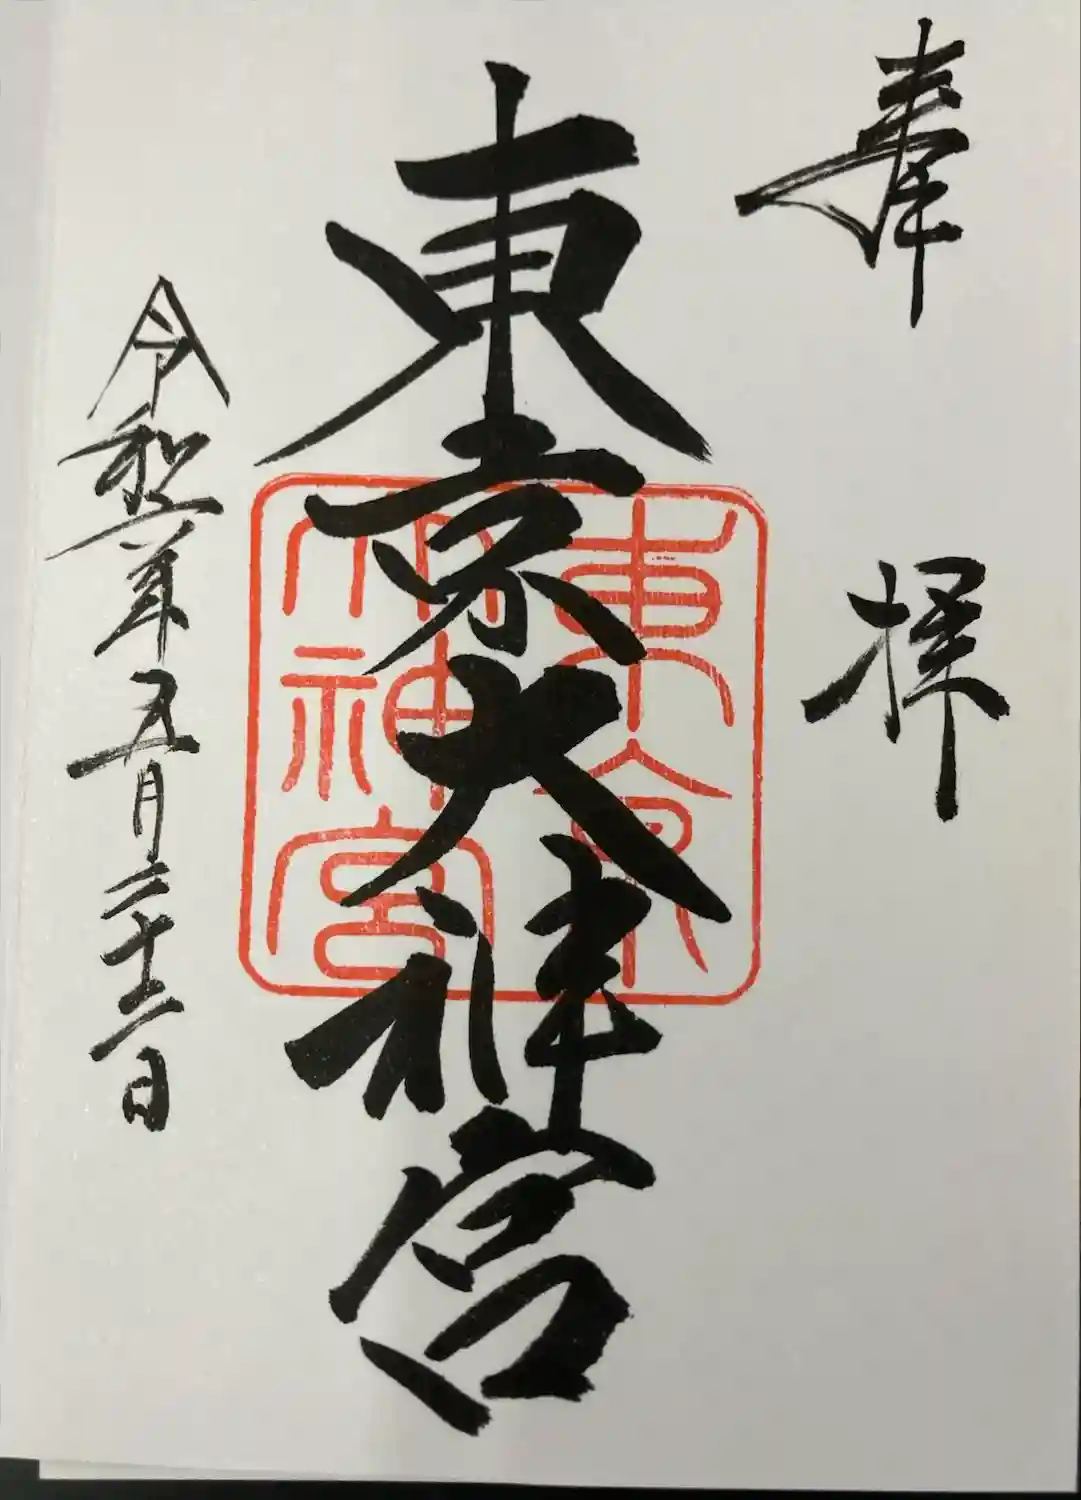 奉拝
東京大神宮
東京
大神宮
令和六年五月二十二日